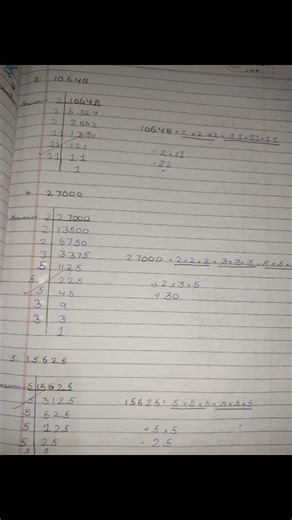 3. 10648
Answer 2 | 10648
2 | 5324
2 | 2662
11 | 1331
11 | 121
11 | 11
1
10648 = 2 × 2 × 2 × 11 × 11 × 11
= 2 × 11
= 22
4. 27000
Answer 2 | 27000
2 | 13500
2 | 6750
3 | 3375
5 | 1125
5 | 225
5 | 45
3 | 9
3 | 3
1
27000 = 2 × 2 × 2 × 3 × 3 × 3 × 5 × 5 ×
→ 2 × 3 × 5
→ 30
5. 15625
5 | 15625
5 | 3125
5 | 625
5 | 125
5 | 25
5 | 5
15625 = 5 × 5 × 5 × 5 × 5 × 5
→ 5 × 5
= 25